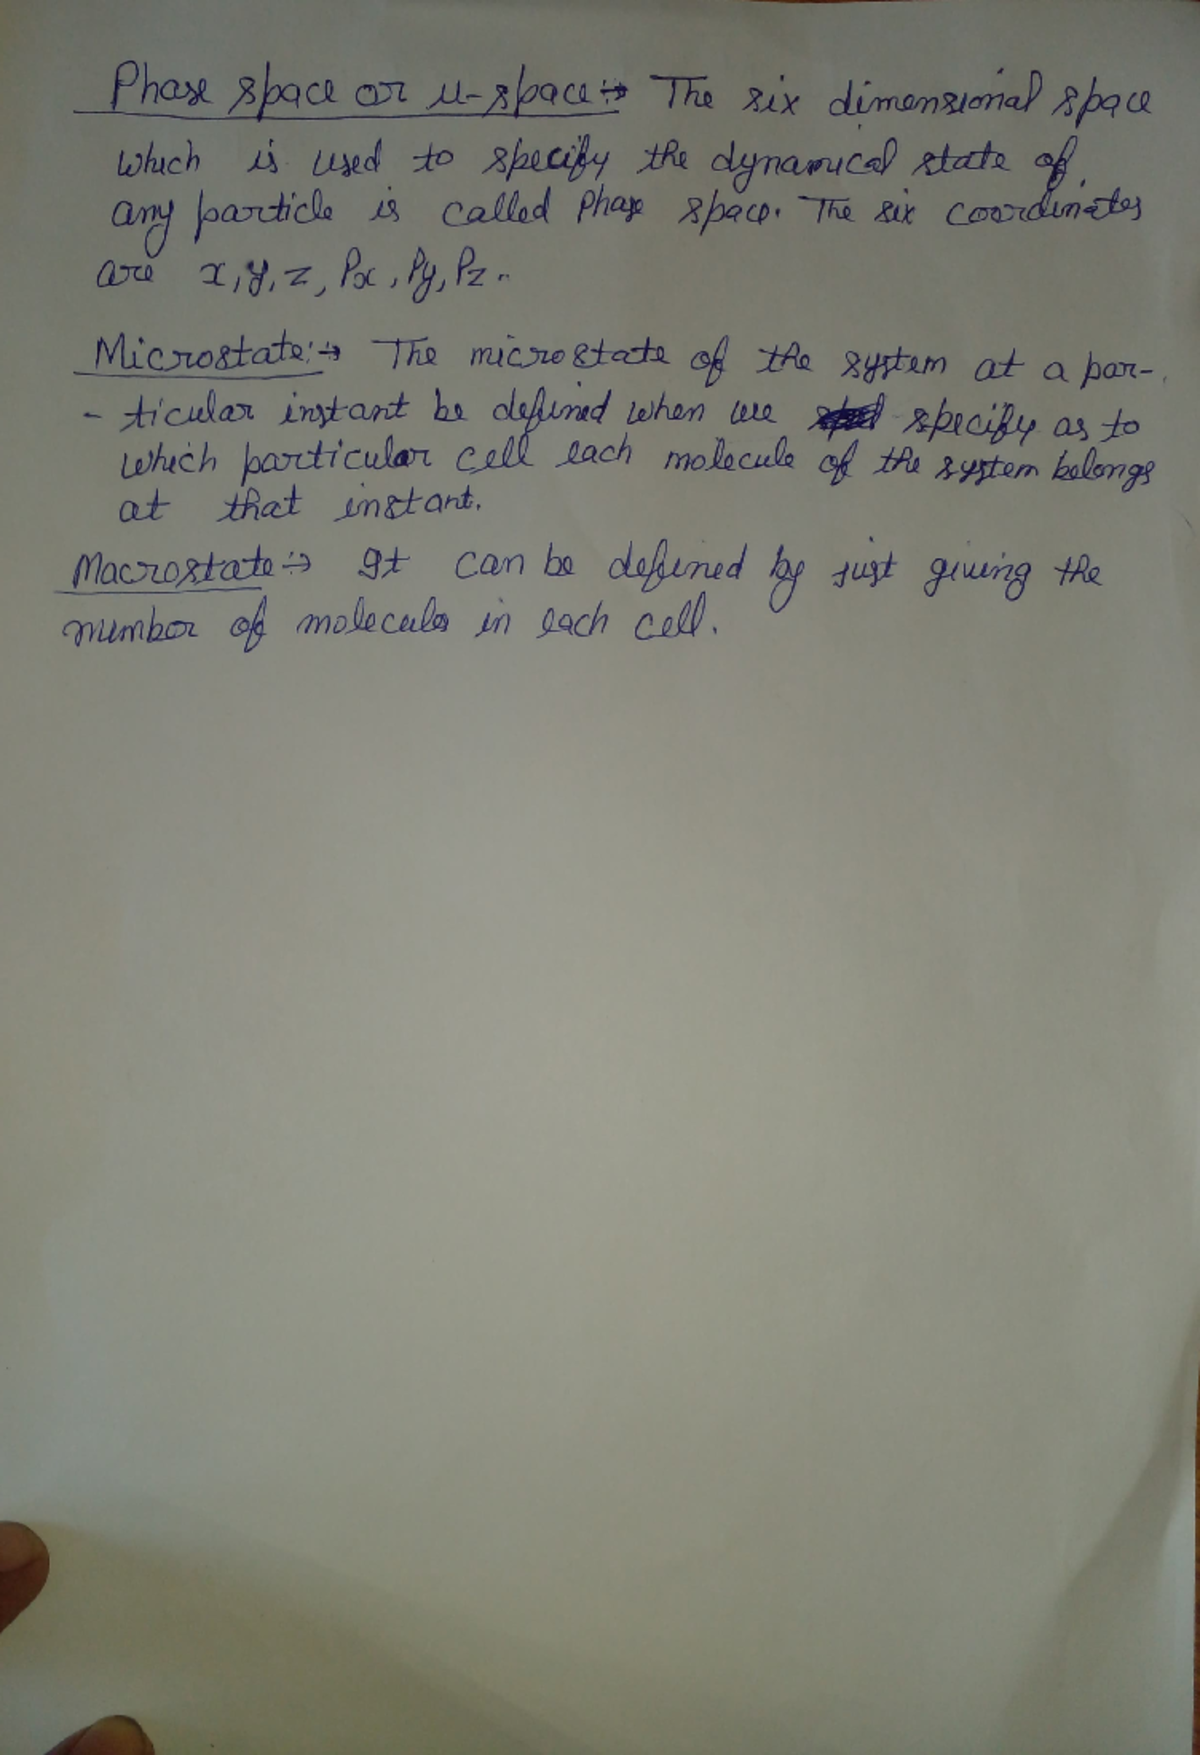 Phase space or μ-space :→ The six dimensional space
which is used to specify the dynamical state of
any particle is called Phase space. The six coordinates
are x, y, z, Px, Py, Pz.
Microstate :→ The microstate of the system at a par-
- ticular instant be defined when we specify as to
which particular cell each molecule of the system belongs
at that instant.
Macrostate :→ It can be defined by just giving the
number of molecules in each cell.